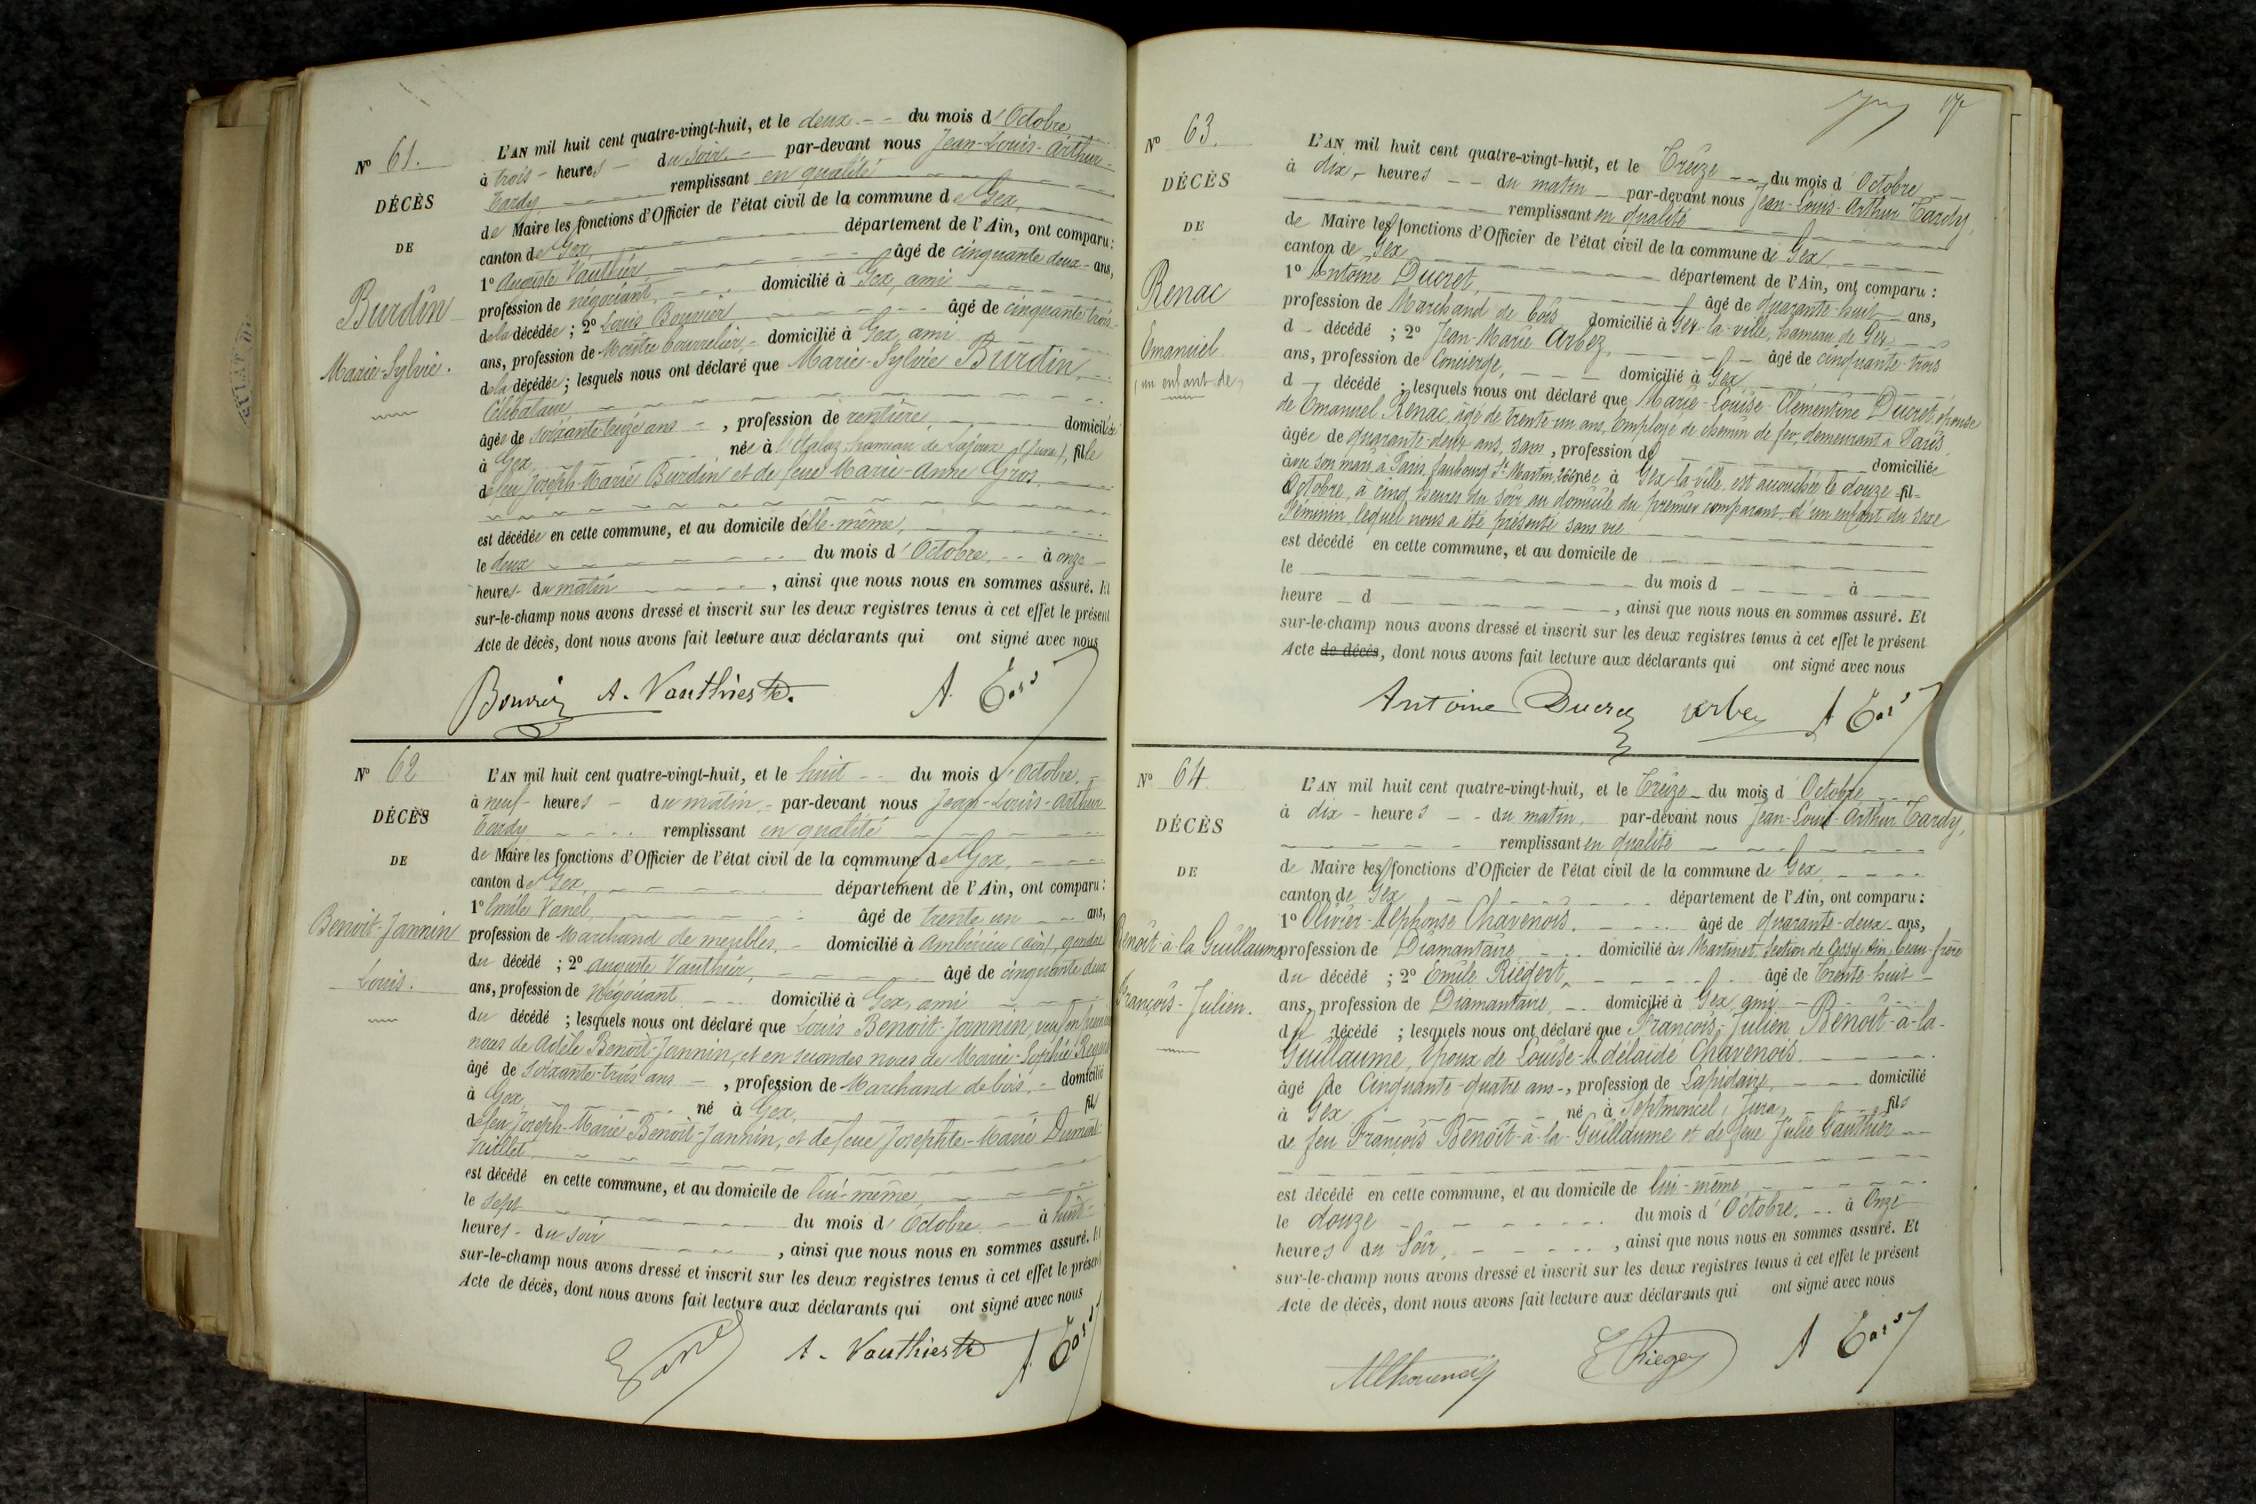 N° 61.
DÉCÈS
DE
Burdin
Marie-Sylvie.
L'AN mil huit cent quatre-vingt-huit, et le deux du mois d'Octobre
à trois heures du soir par-devant nous Jean-Louis-Arthur
Tardy remplissant en qualité
de Maire les fonctions d'Officier de l'état civil de la commune de Gex,
canton de Gex, département de l'Ain, ont comparu :
1° Auguste Vauthier, âgé de cinquante deux ans,
profession de négociant, domicilié à Gex, ami
de la décédée ; 2° Louis Bouvier âgé de cinquante trois
ans, profession de Maître bourrelier, domicilié à Gex, ami
de la décédée ; lesquels nous ont déclaré que Marie-Sylvie Burdin,
Célibataire
âgée de soixante treize ans , profession de rentière, domiciliée
à Gex, née à hameau de Lajoux (Jura), fille
de feu Joseph-Marie Burdin et de feue Marie-Anne Gros,
est décédée en cette commune, et au domicile d'elle-même,
le deux du mois d'Octobre à onze
heures du matin , ainsi que nous nous en sommes assuré. Et
sur-le-champ nous avons dressé et inscrit sur les deux registres tenus à cet effet le présent
Acte de décès, dont nous avons fait lecture aux déclarants qui ont signé avec nous
Bouvier A. Vauthier A. Tardy
N° 62
DÉCÈS
DE
Benoit-Jannin
Louis.
L'AN mil huit cent quatre-vingt-huit, et le huit du mois d'Octobre
à neuf heures du matin, par-devant nous Jean-Louis-Arthur
Tardy remplissant en qualité
de Maire les fonctions d'Officier de l'état civil de la commune de Gex,
canton de Gex, département de l'Ain, ont comparu :
1° Emile Vanel, âgé de trente un ans,
profession de Marchand de meubles, domicilié à Ambérieu (Ain), gendre
du décédé ; 2° Auguste Vauthier, âgé de cinquante deux
ans, profession de Négociant domicilié à Gex, ami
du décédé ; lesquels nous ont déclaré que Louis Benoit-Jannin, veuf en
noces de Adèle Benoit-Jannin, et en secondes noces de Marie-Sophie
âgé de soixante-trois ans , profession de Marchand de bois, domicilié
à Gex, né à Gex, fils
de feu Joseph-Marie Benoit-Jannin, et de feue Josephte-Marie

est décédé en cette commune, et au domicile de lui-même,
le sept du mois d'Octobre à huit
heures du soir , ainsi que nous nous en sommes assuré. Et
sur-le-champ nous avons dressé et inscrit sur les deux registres tenus à cet effet le présent
Acte de décès, dont nous avons fait lecture aux déclarants qui ont signé avec nous
A. Vauthier A. Tardy
N° 63.
DÉCÈS
DE
Renac
Emanuel
(un enfant de)
L'AN mil huit cent quatre-vingt-huit, et le Treize du mois d'Octobre
à dix heures du matin par-devant nous Jean-Louis-Arthur Tardy,
remplissant en qualité
de Maire les fonctions d'Officier de l'état civil de la commune de Gex
canton de Gex département de l'Ain, ont comparu :
1° Antoine Ducret, âgé de quarante-huit ans,
profession de Marchand de bois domicilié à Gex-la-ville, hameau de Gex
d décédé ; 2° Jean-Marie Arbez, âgé de cinquante-trois
ans, profession de Concierge, domicilié à Gex
d décédé ; lesquels nous ont déclaré que Marie-Louise-Clémentine Ducret, épouse
de Emanuel Renac, âgé de trente-un ans, Employé de chemin de fer, demeurant à Paris,
âgée de quarante-deux ans, sans , profession de domiciliée
avec son mari à Paris, faubourg St Martin, 266, née à Gex-la-ville, est accouchée le douze fil
Octobre, à cinq heures du soir au domicile du premier comparant, d'un enfant du sexe
Féminin, lequel nous a été présenté sans vie
est décédé en cette commune, et au domicile de
le du mois d à
heure d , ainsi que nous nous en sommes assuré. Et
sur-le-champ nous avons dressé et inscrit sur les deux registres tenus à cet effet le présent
Acte de décès, dont nous avons fait lecture aux déclarants qui ont signé avec nous
Antoine Ducret Arbez A Tardy
N° 64.
DÉCÈS
DE
Benoît-à-la-Guillaume
François-Julien.
L'AN mil huit cent quatre-vingt-huit, et le Treize du mois d'Octobre
à dix heures du matin, par-devant nous Jean-Louis-Arthur Tardy,
remplissant en qualité
de Maire les fonctions d'Officier de l'état civil de la commune de Gex
canton de Gex département de l'Ain, ont comparu :
1° Olivier-Alphonse Chavenois, âgé de quarante-deux ans,
profession de Diamantaire domicilié au Martinet, Section de Cessy, Ain, beau-frère
du décédé ; 2° Emile Riegert, âgé de Trente-huit
ans, profession de Diamantaire, domicilié à Gex, ami
du décédé ; lesquels nous ont déclaré que François-Julien Benoît-à-la-
Guillaume, époux de Louise-Adélaïde Chavenois
âgé de Cinquante-quatre ans , profession de Lapidaire, domicilié
à Gex né à Septmoncel, Jura, fils
de feu François Benoît-à-la-Guillaume et de feue Julie Gauthier
est décédé en cette commune, et au domicile de lui-même
le douze du mois d'Octobre, à Onze
heures du Soir, , ainsi que nous nous en sommes assuré. Et
sur-le-champ nous avons dressé et inscrit sur les deux registres tenus à cet effet le présent
Acte de décès, dont nous avons fait lecture aux déclarants qui ont signé avec nous
A Tardy